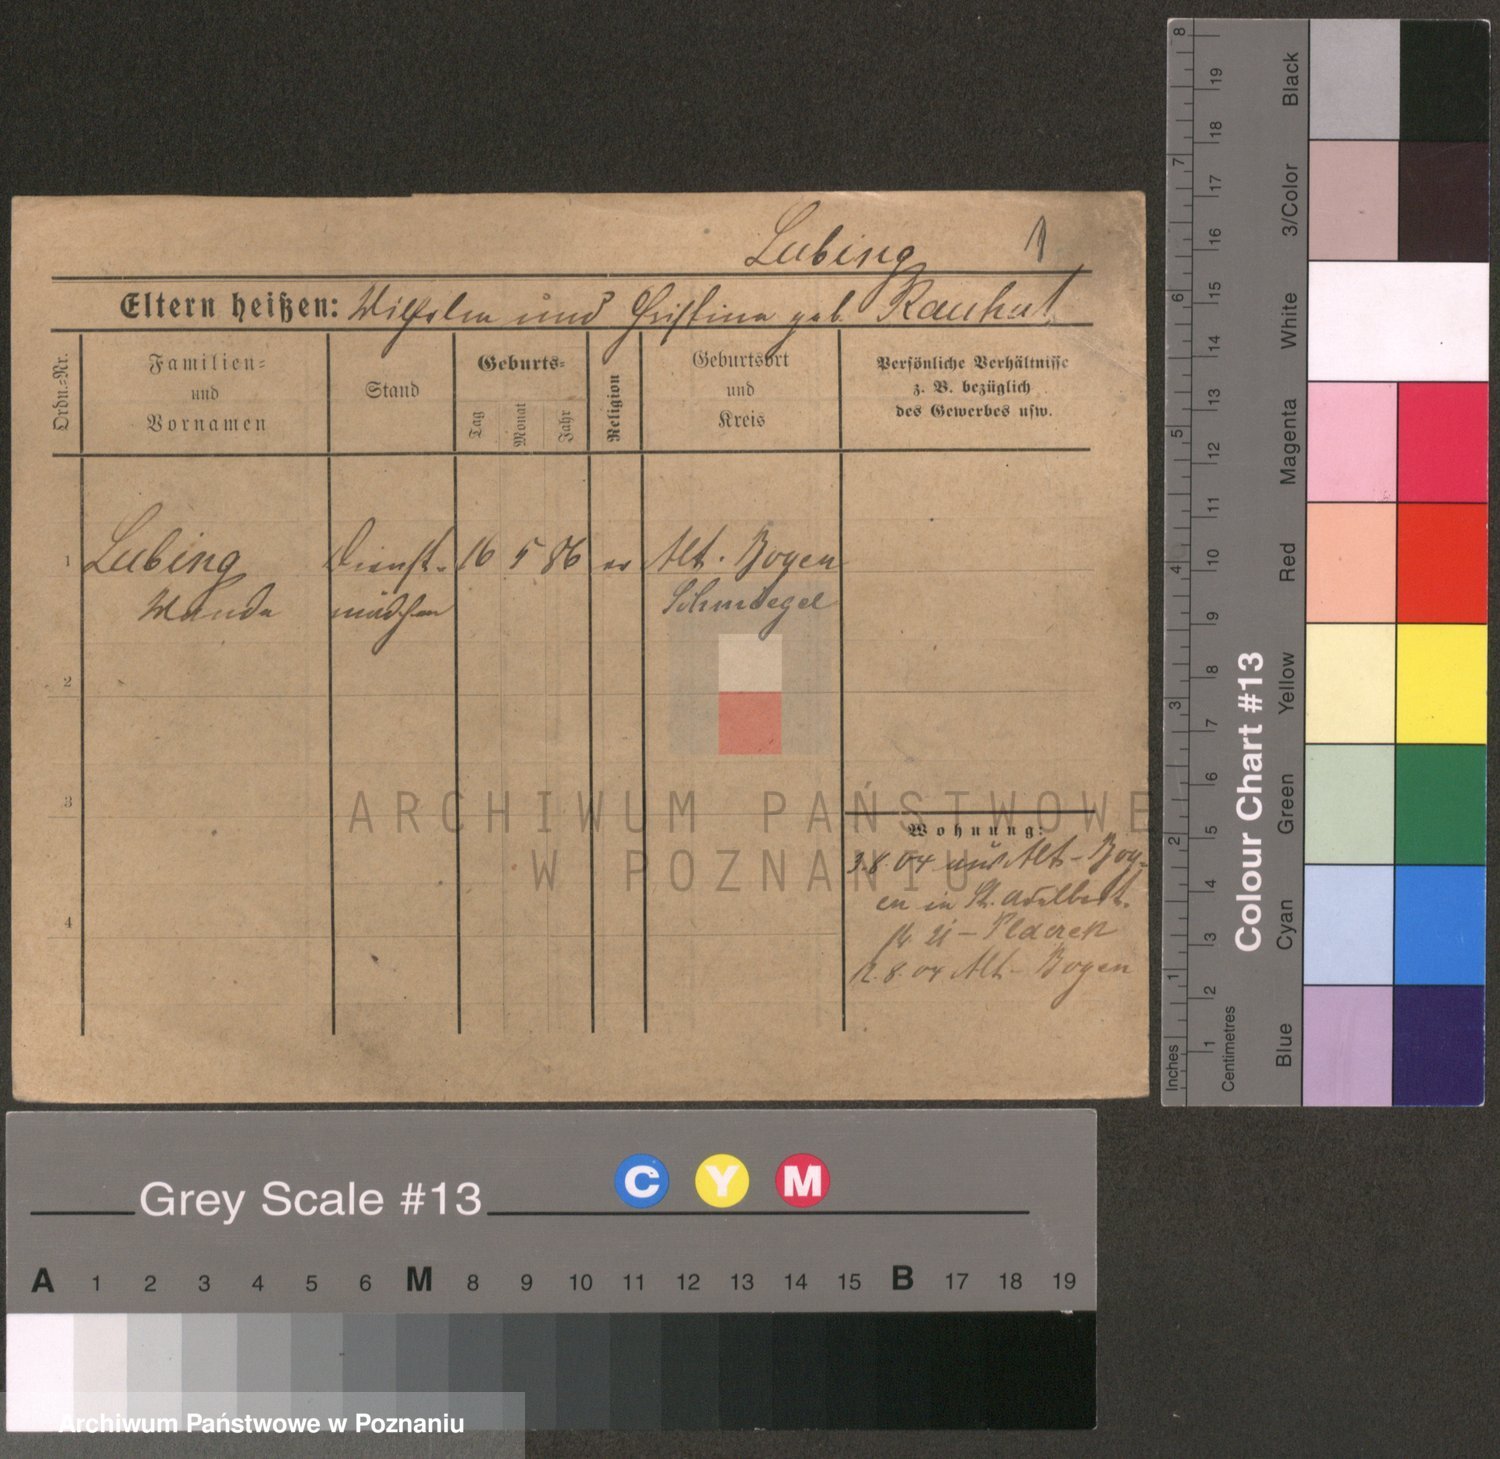 Lubing 1
Eltern heißen: Wilhelm und Christina geb. Rauhut
Ordn.-Nr.
Familien-
und
Vornamen
Stand
Geburts-
Tag
Monat
Jahr
Religion
Geburtsort
und
Kreis
Persönliche Verhältnisse
z. B. bezüglich
des Gewerbes usw.
1 Lubing Dienst- 16 5 86 ev Alt-Boyen
Wanda mädchen Schmiegel
2
3
4
Wohnung:
3.8.04 aus Alt-Boy-
en in St. Adalbert-
21 - Placzek
12.8.04 Alt-Boyen
ARCHIWUM PAŃSTWOWE
W POZNANIU
Grey Scale #13
C Y M
A 1 2 3 4 5 6 M 8 9 10 11 12 13 14 15 B 17 18 19
Archiwum Państwowe w Poznaniu
Colour Chart #13
Inches 1 2 3 4 5 6 7 8
Centimetres 1 2 3 4 5 6 7 8 9 10 11 12 13 14 15 16 17 18 19
Blue Cyan Green Yellow Red Magenta White 3/Color Black